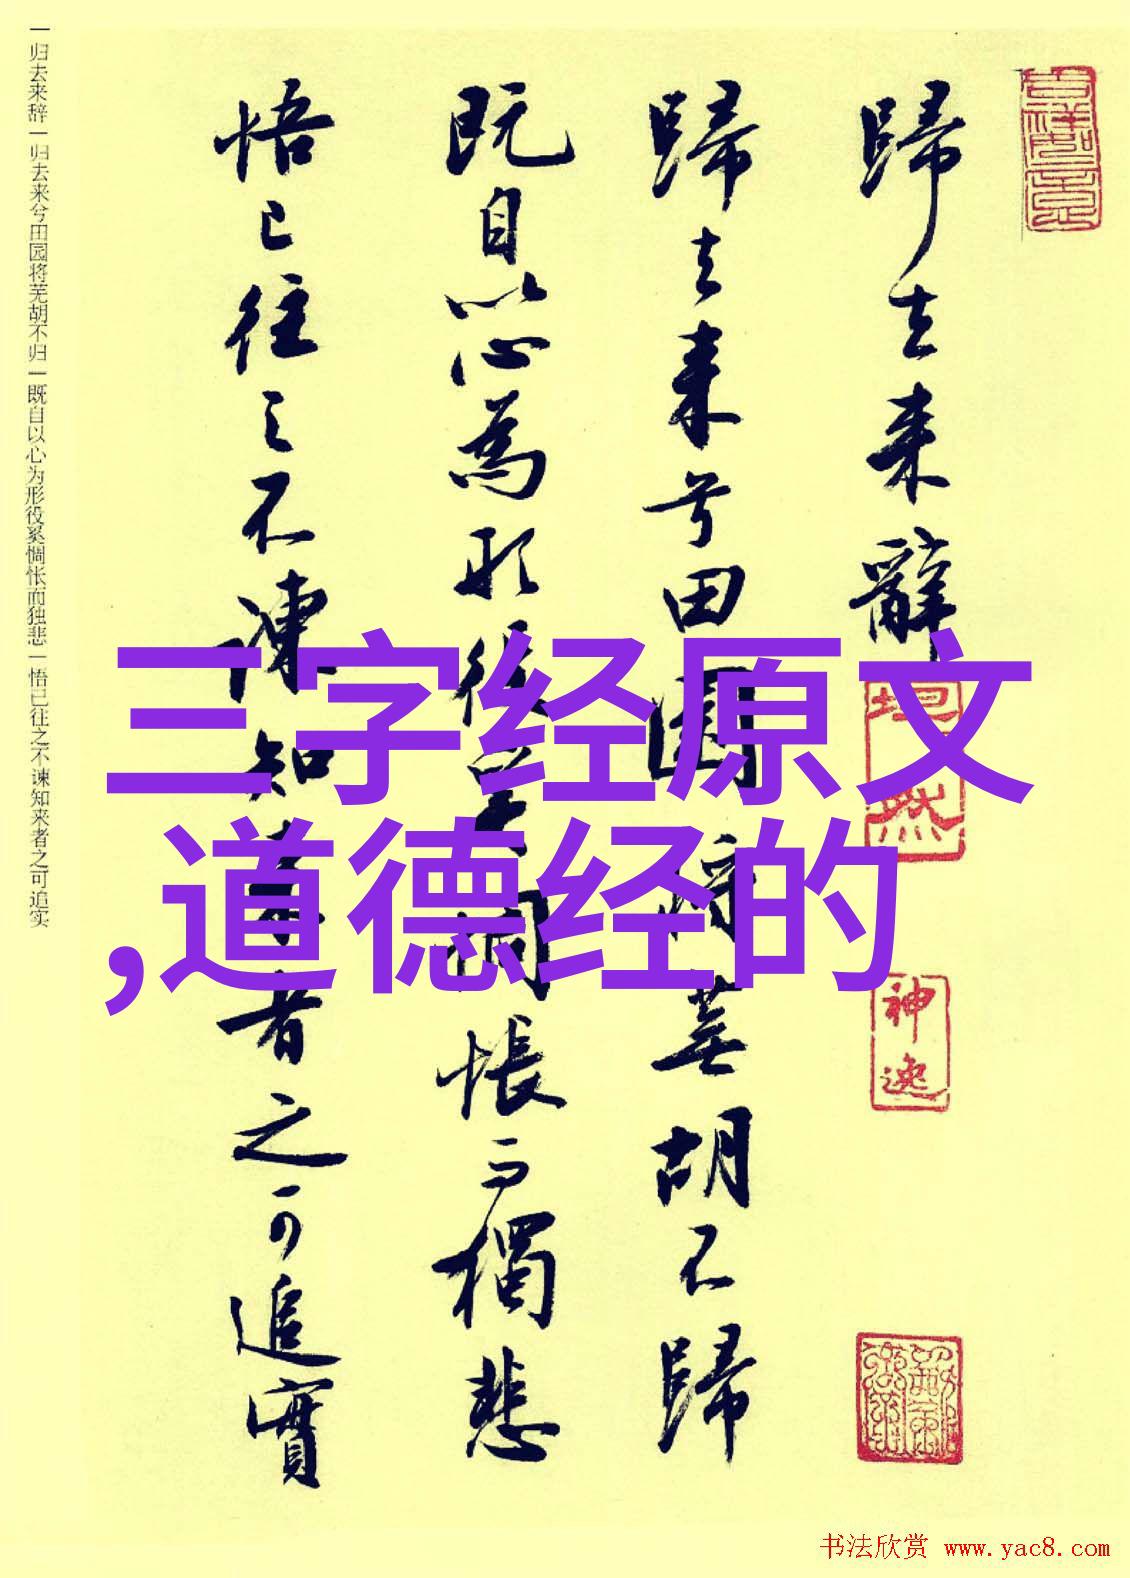 歸去来辭
歸去来兮田園将蕪胡不歸
既自以心為形役奚惆悵而獨悲
悟已往之不諫知来者之可追實
一归去来辞一归去来兮田园将芜胡不归一既自以心为形役奚惆怅而独悲一悟已往之不谏知来者之可追实
三字经原文
,道德经的
神逸
书法欣赏 www.yac8.com